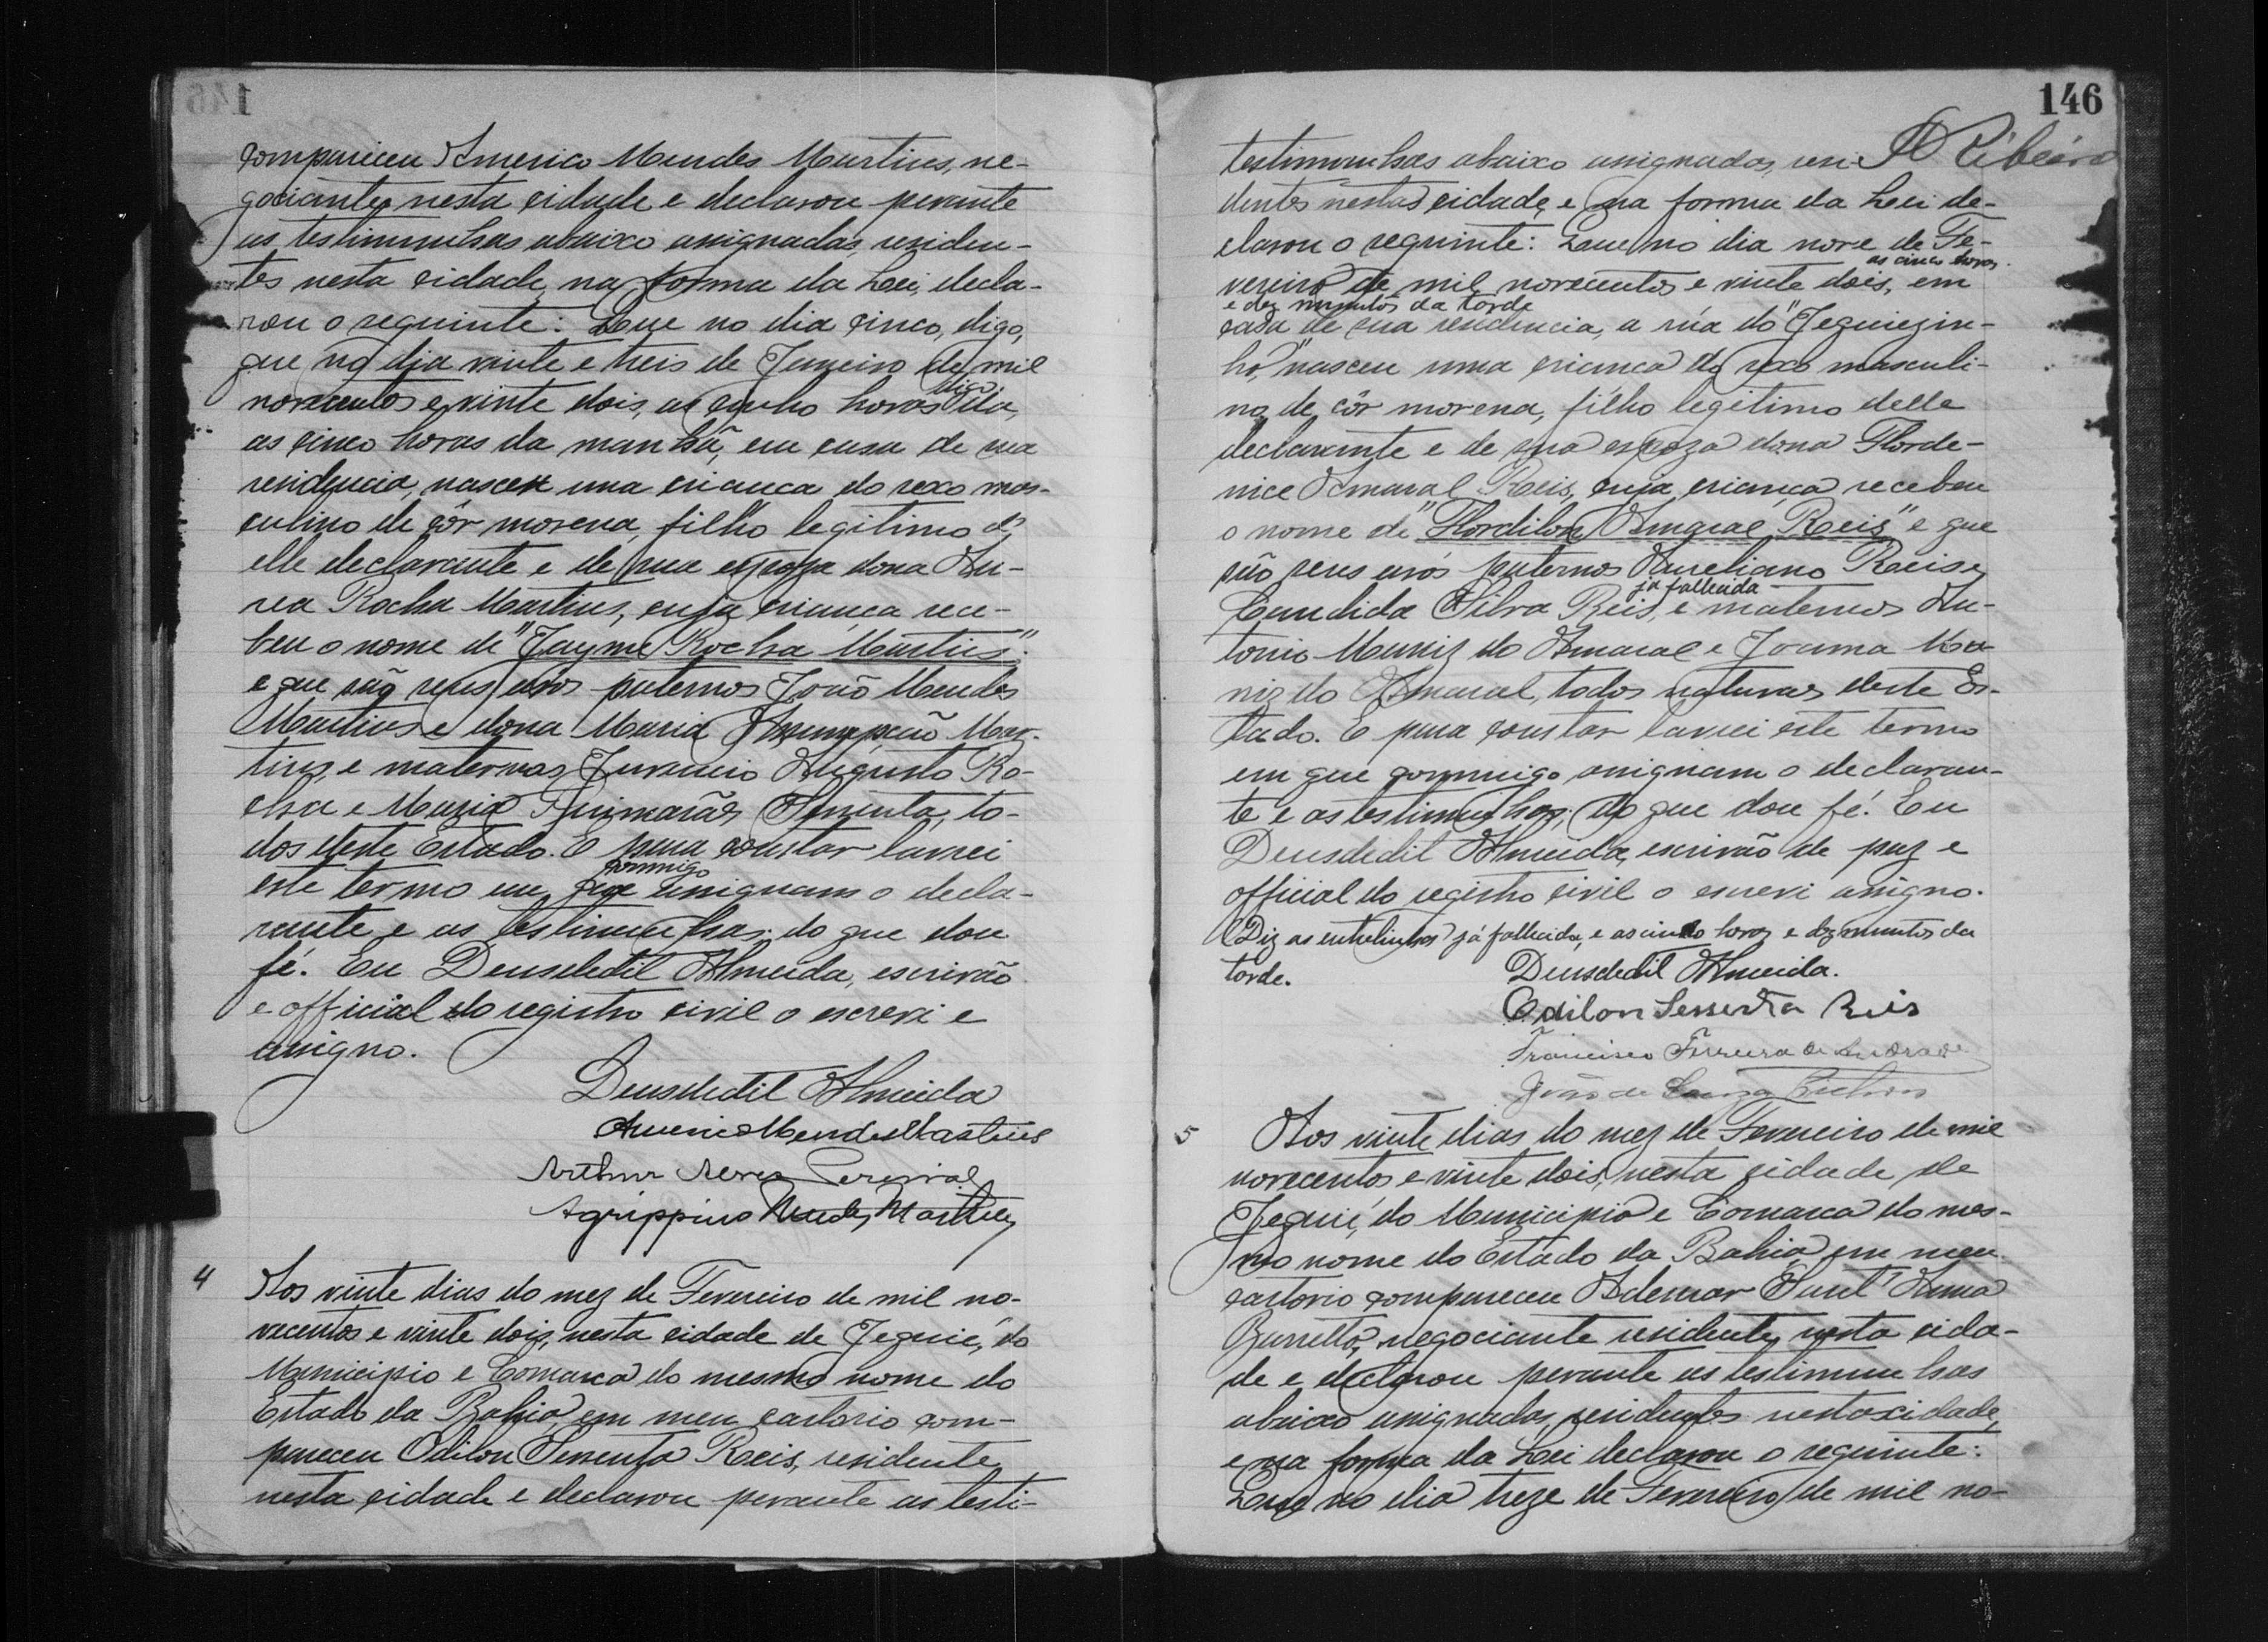 compareceu Americo Mendes Martins, ne-
gociante, nesta cidade e declarou perante
as testimunhas abaixo assignadas, residen-
tes nesta cidade, na forma da Lei, decla-
rou o seguinte: Que no dia cinco, digo,
que no dia vinte e treis de Janeiro de mil
novecentos e vinte dois, as horas da, digo,
as cinco horas da manhã, em casa de sua
residencia, nasceu uma criança do sexo mas-
culino de côr morena, filho legitimo d'
elle declarante e de sua espoza dona Au-
rea Rocha Martins, cuja criança rece-
beu o nome de "Jayme Rocha Martins".
e que são seus avós paternos João Mendes
Martins e dona Maria Assumpção Mar-
tins, e maternos Juvencio Augusto Ro-
cha e Maria Guimarães todos
dos deste Estado. E para constar lavrei
este termo em que commigo assignam o decla-
rante e as testimunhas; do que dou
fé. Eu Deusdedit Almeida, escrivão
e official do registro civil o escrevi e
assigno.
Deusdedit Almeida
Americo Mendes Martins
Arthur Neves
Agrippino Mendes Martins
4 Aos vinte dias do mez de Fevereiro de mil no-
vecentos e vinte dois, nesta cidade de Jequié, do
Municipio e Comarca do mesmo nome do
Estado da Bahia, em meu cartorio com-
pareceu Odilon Reis, residente
nesta cidade e declarou perante as testi-
146
Ribeiro
testimunhas abaixo assignadas, resi-
dentes nesta cidade, e na forma da Lei de-
clarou o seguinte: Que no dia nove de Fe-
as cinco horas
vereiro de mil novecentos e vinte dois, em
e dez minutos da tarde
casa de sua residencia, a rúa do "Jequiezin-
ho," nasceu uma criança do sexo masculi-
no, de côr morena, filho legitimo delle
declarante e de sua espoza dona Florde-
nice Amaral Reis, cuja criança recebeu
o nome de "Flordilon Amaral Reis" e que
são seus avós paternos Aureliano Reis e
já fallecida
Candida Silva Reis, e maternos An-
tonio Muniz do Amaral e Joanna Mu-
niz do Amaral, todos naturaes deste Es-
tado. E para constar lavrei este termo
em que commigo assignam o declaran-
te e as testimunhas; do que dou fé. Eu
Deusdedit Almeida, escrivão de paz e
official do registro civil o escrevi assigno.
Diz as entrelinhas já fallecida, e as cinco horas e dez minutos da
tarde.
Deusdedit Almeida.
Odilon Reis
Francisco Ferreira de Andrade
João de Souza
5 Aos vinte dias do mez de Fevereiro de mil
novecentos e vinte dois, nesta cidade de
Jequié, do Municipio e Comarca do mes-
mo nome do Estado da Bahia, em meu
cartorio compareceu Ademar Sant'Anna
Barretto, negociante residente nesta cida-
de e declarou perante as testimunhas
abaixo assignadas, residentes nesta cidade,
e na forma da Lei declarou o seguinte:
Que no dia treze de Fevereiro de mil no-